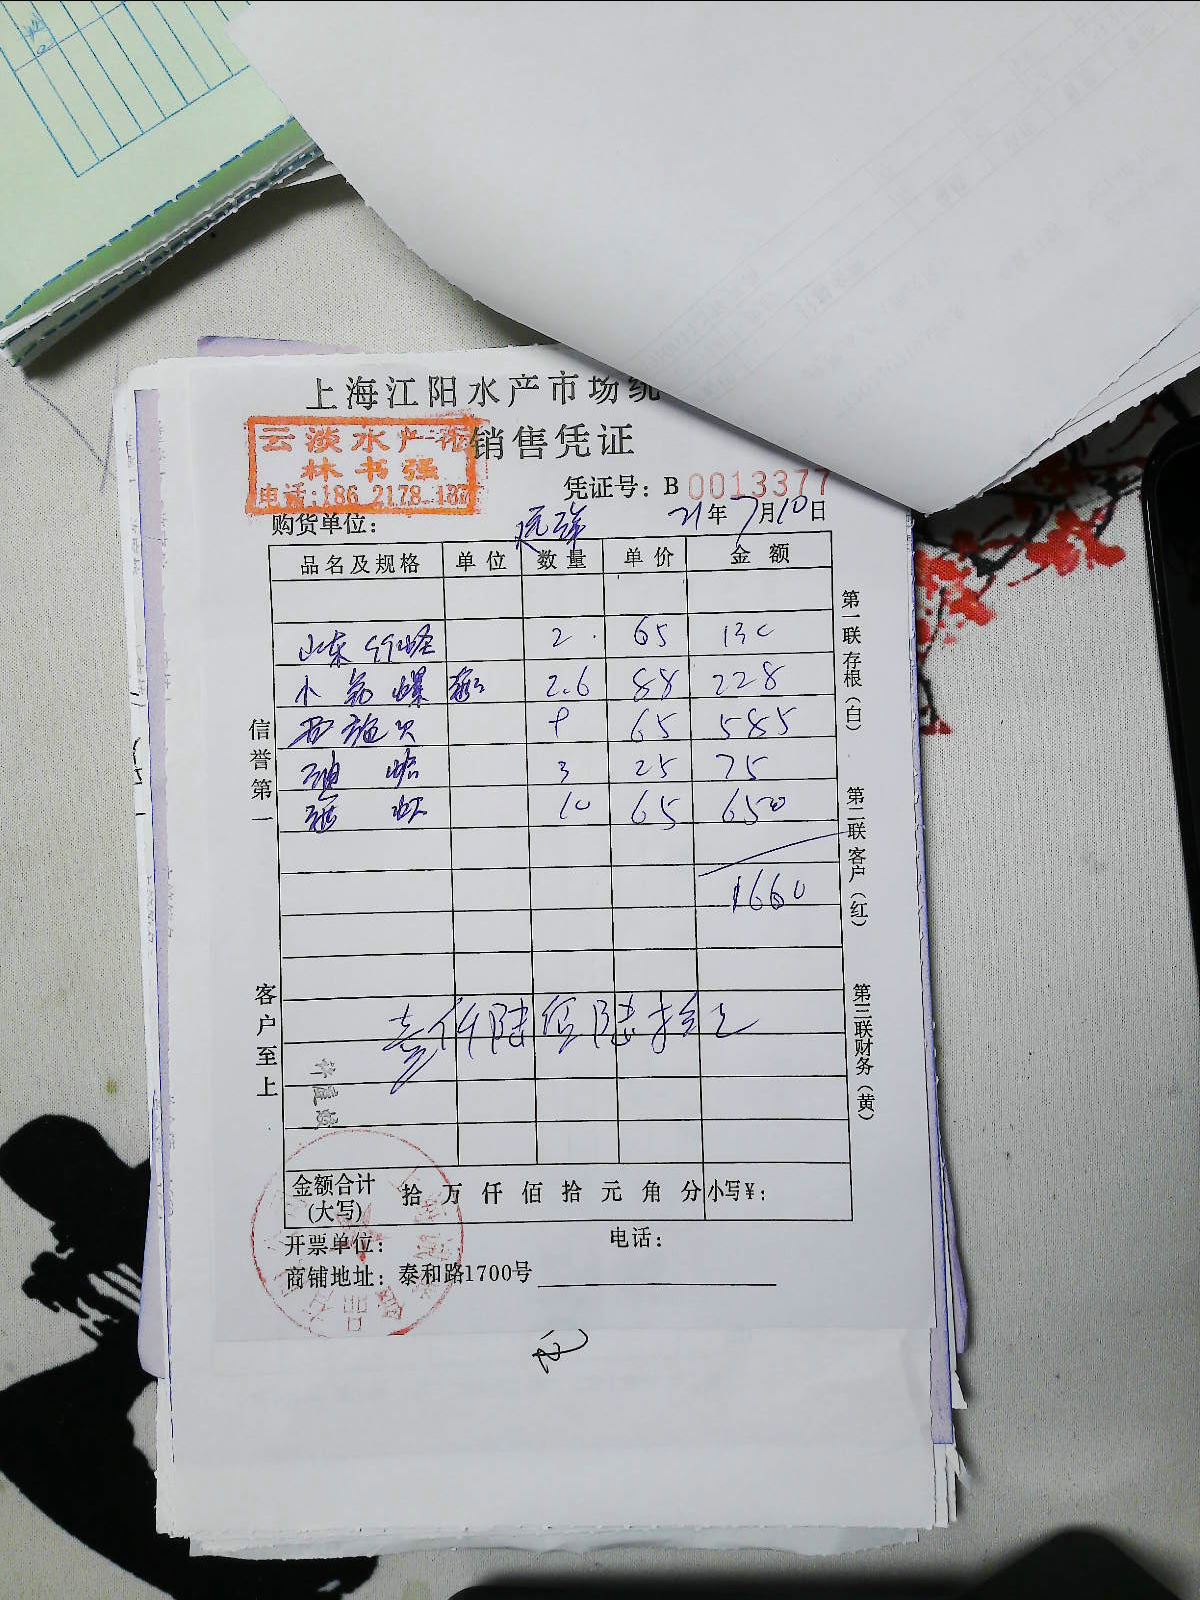 上海江阳水产市场统
销售凭证
云淡水产
林书强
电话:186 2178 187
凭证号：B 0013377
购货单位：
21年7月10日
品名及规格 单位 数量 单价 金额
山东 2. 65 130
小 爆 2.6 88 228
西施贝 9 65 585
3 25 75
10 65 650
1660
壹仟陆佰陆拾元
许
金额合计(大写) 拾 万 仟 佰 拾 元 角 分 小写¥：
开票单位： 电话：
商铺地址：泰和路1700号
信誉第一
客户至上
第一联存根（白）
第二联客户（红）
第三联财务（黄）